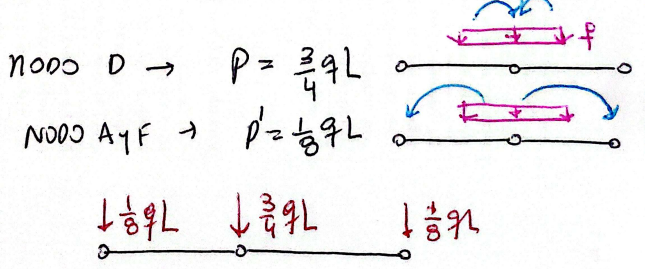 NODO D → P = 3/4 qL
f
NODO A y F → P' = 1/8 qL
↓ 1/8 qL ↓ 3/4 qL ↓ 1/8 qL